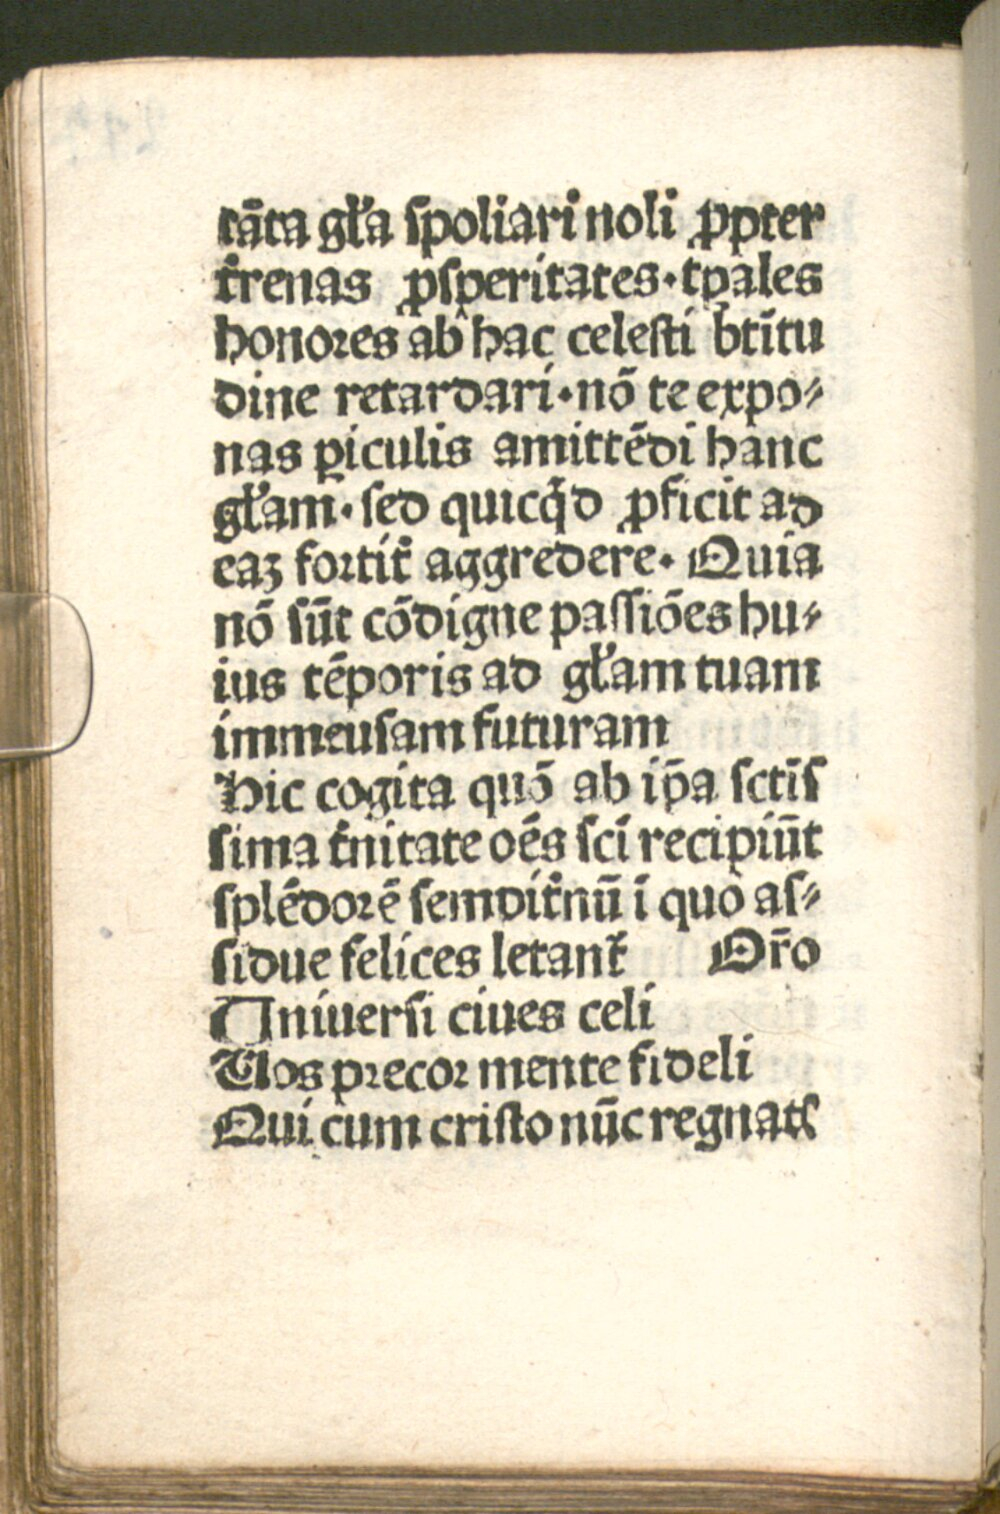 tāta gl'a spoliari noli ꝓpter
t'renas ꝓsperitates·tꝑales
honores ab hac celesti btītu
dine retardari·nō te expo⸗
nas ꝑiculis amittēdi hanc
gl'am·sed quicq̇d ꝓficit ad
eaꝫ fortit' aggredere·Quia
nō sūt cōdigne passiōes hu⸗
ius tēporis ad gl'am tuam
immeusam futuram
Hic cogita quō ab ip̄a sctīs
sima t'nitate oēs scī recipiūt
splēdorē sempit'nū ī quo as⸗
sidue felices letant' Or̄o
Uniuersi ciues celi
Uos precor mente fideli
Qui cum cristo nūc regnatꝭ